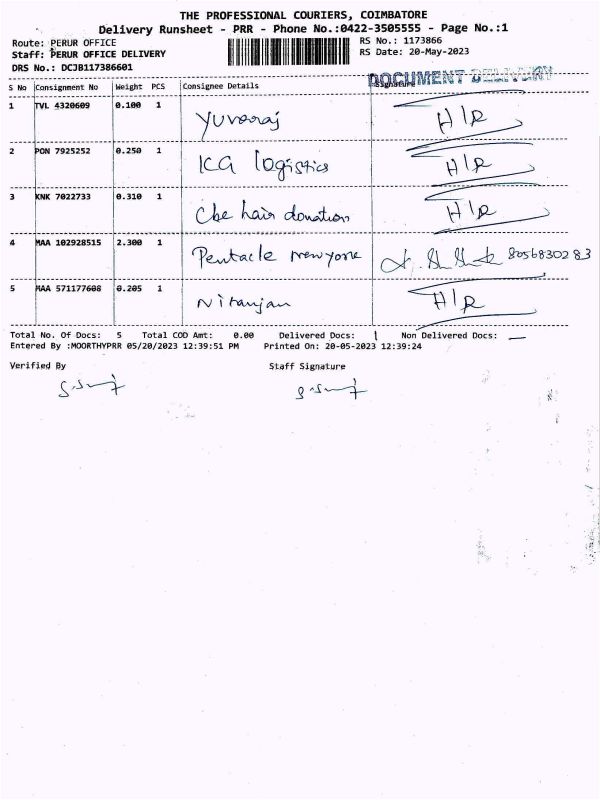 THE PROFESSIONAL COURIERS, COIMBATORE
Delivery Runsheet - PRR - Phone No.:0422-3505555 - Page No.:1
Route: PERUR OFFICE RS No.: 1173866
Staff: PERUR OFFICE DELIVERY RS Date: 20-May-2023
DRS No.: DCJB117386601
DOCUMENT DELIVERY
S No Consignment No Weight PCS Consignee Details Signature
1 TVL 4320609 0.100 1 Yuvaraj H/R
2 PON 7925252 0.250 1 ICG logistics H/R
3 KNK 7022733 0.310 1 Cbe hair donation H/R
4 MAA 102928515 2.300 1 Pentacle newyork 8056830283
5 MAA 571177608 0.205 1 Niranjan H/R
Total No. Of Docs: 5 Total COD Amt: 0.00 Delivered Docs: 1 Non Delivered Docs: —
Entered By :MOORTHYPRR 05/20/2023 12:39:51 PM Printed On: 20-05-2023 12:39:24
Verified By Staff Signature